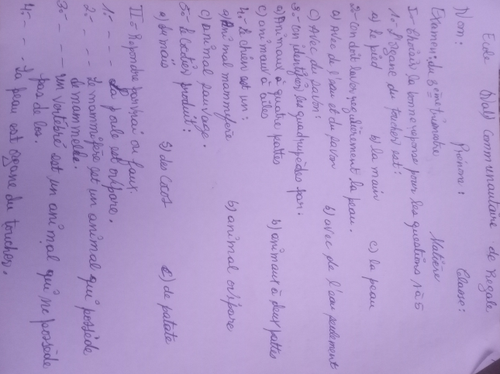 Ecole Bald communautaire de Regale
Nom: Prénom: Classe:
Examen du 3ème trimestre Matière
I- Choisis la bonne réponse pour les questions 1 à 5
1- L'organe du toucher est:
a) le pied b) la main c) la peau
2- on doit laver régulièrement la peau.
a) Avec de l'eau et du savon b) avec de l'eau seulement
c) Avec du savon:
3- on identifie les quadrupèdes par:
a) Animaux à quatre pattes b) animaux à deux pattes
c) animaux à ailes
4- le chien est un:
a) Animal mammifère b) animal ovipare
c) animal sauvage.
5- le cocotier produit:
a) du maïs b) des cocos c) de patate
II- Répondre par vrai ou faux.
1- --- La poule est ovipare.
2- --- Le mammifère est un animal qui possède
de mammelle.
3- --- un vertébré est un animal qui ne possède
pas de los.
4- --- La peau est organe du toucher.